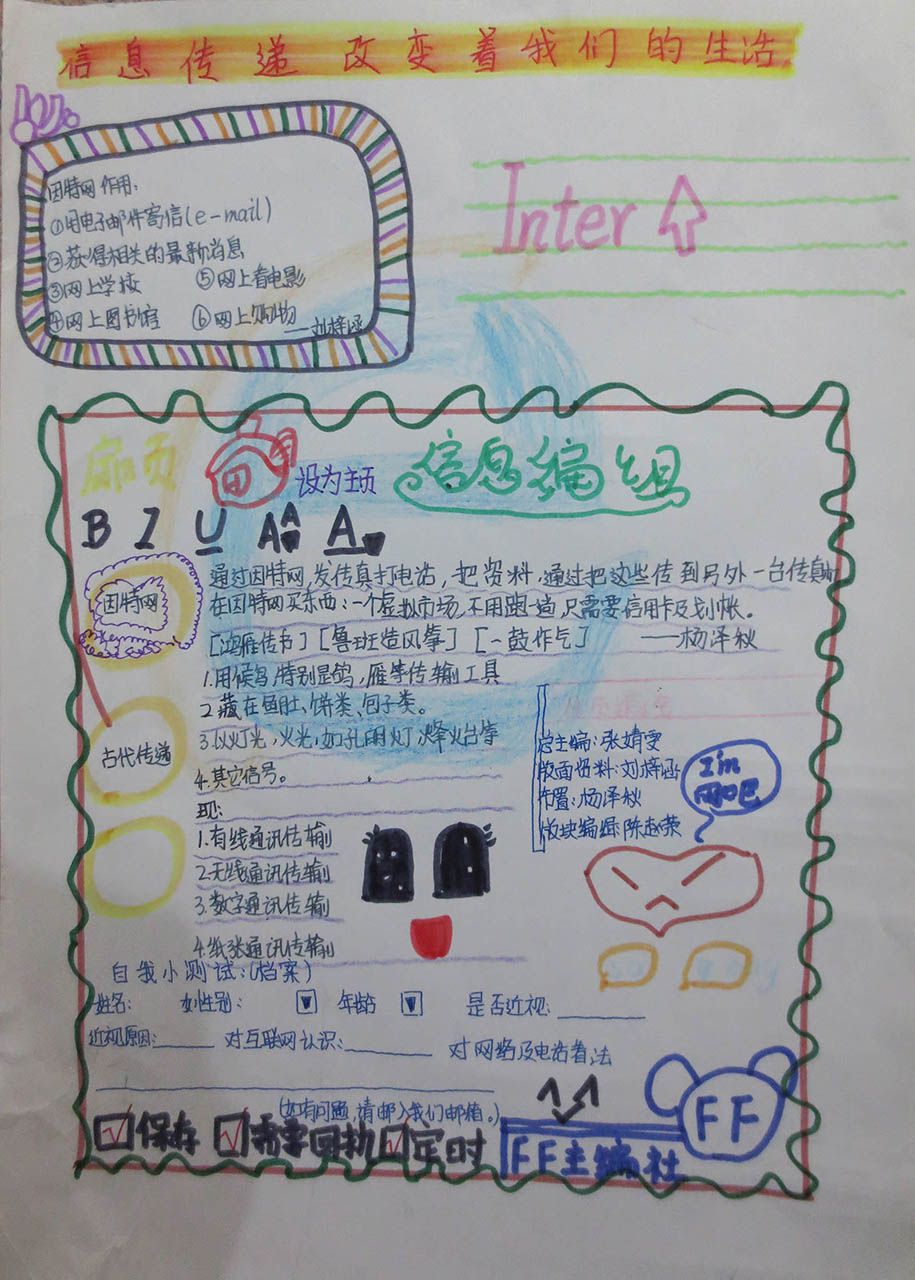 信息传递改变着我们的生活
因特网作用:
①用电子邮件寄信(e-mail)
②获得相关的最新消息
③网上学校 ⑤网上看电影
④网上图书馆 ⑥网上购物
——刘梓涵
Inter
扉页
设为主页
信息编组
B I U A A A
因特网
通过因特网,发传真打电话,把资料,通过把这些传到另外一台传真
在因特网买东西:一个虚拟市场,不用跑一趟只需要信用卡及划帐。
[鸿雁传书][鲁班造风筝][一鼓作气] ——杨泽秋
1.用候鸟,特别是鸽,雁等传输工具
2.藏在鱼肚、饼类、包子类。
3.以灯光,火光,如孔明灯,烽火台等
4.其它信号。
古代传递
现:
1.有线通讯传输
2.无线通讯传输
3.数字通讯传输
4.纸张通讯传输
总主编:张婧雯
版面资料:刘梓涵
布置:杨泽秋
版块编辑:陈赵荣
I'm
网吧
自我小测试:(档案)
姓名: 性别: 年龄 是否近视:
近视原因: 对互联网认识: 对网络及电话看法
(如有问题,请邮入我们邮值。)
保存 需要回执 定时
FF主编社
FF